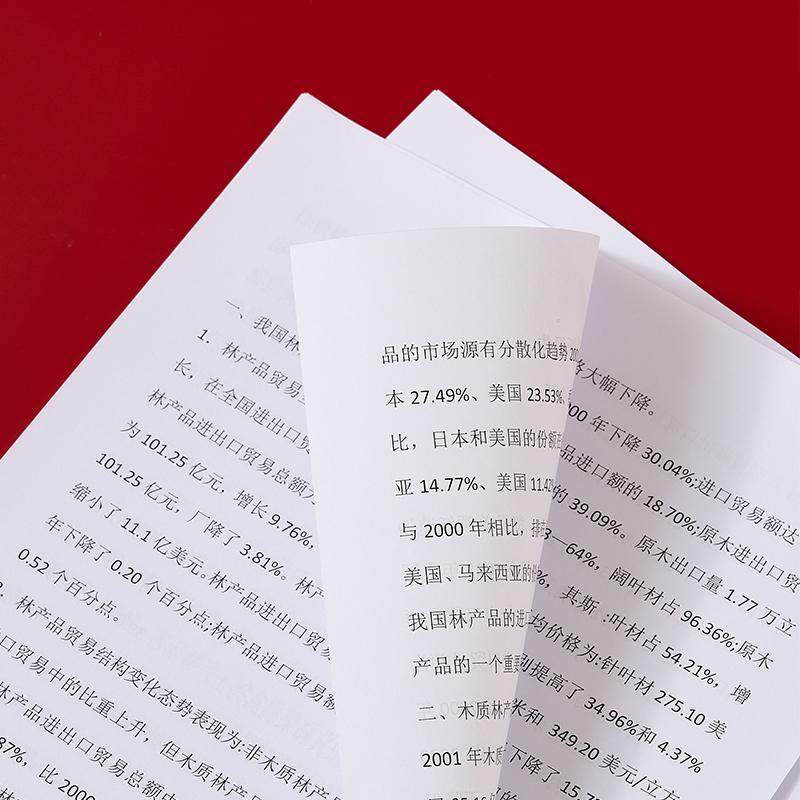 一、我国林
1. 林产品贸易
长，在全国进出口贸
林产品进出口贸易总额
为 101.25 亿元，增长 9.76%，
101.25 亿元，厂降了 3.81%。林产
缩小了 11.1 亿美元。林产品进出口贸
年下降了 0.20 个百分点;林产品进口贸易额
0.52 个百分点。
林产品贸易结构变化态势表现为:非木质林产品
口贸易中的比重上升，但木质林产品
林产品进出口贸易总额中
87%，比 2000
品的市场源有分散化趋势
本 27.49%、美国 23.53%、
比，日本和美国的份额
亚 14.77%、美国 11.42
与 2000 年相比，排在
美国、马来西亚的份
我国林产品的进口
产品的一个重要
二、木质林产
2001 年木质
大幅下降。
00 年下降 30.04%;进口贸易额达
品进口额的 18.70%;原木进出口贸
的 39.09%。原木出口量 1.77 万立
3—64%，阔叶材占 96.36%;原木
%，其斯 :叶材占 54.21%，增
均价格为:针叶材 275.10 美
提高了 34.96%和 4.37%
米和 349.20 美元/立方
下降了 15.7